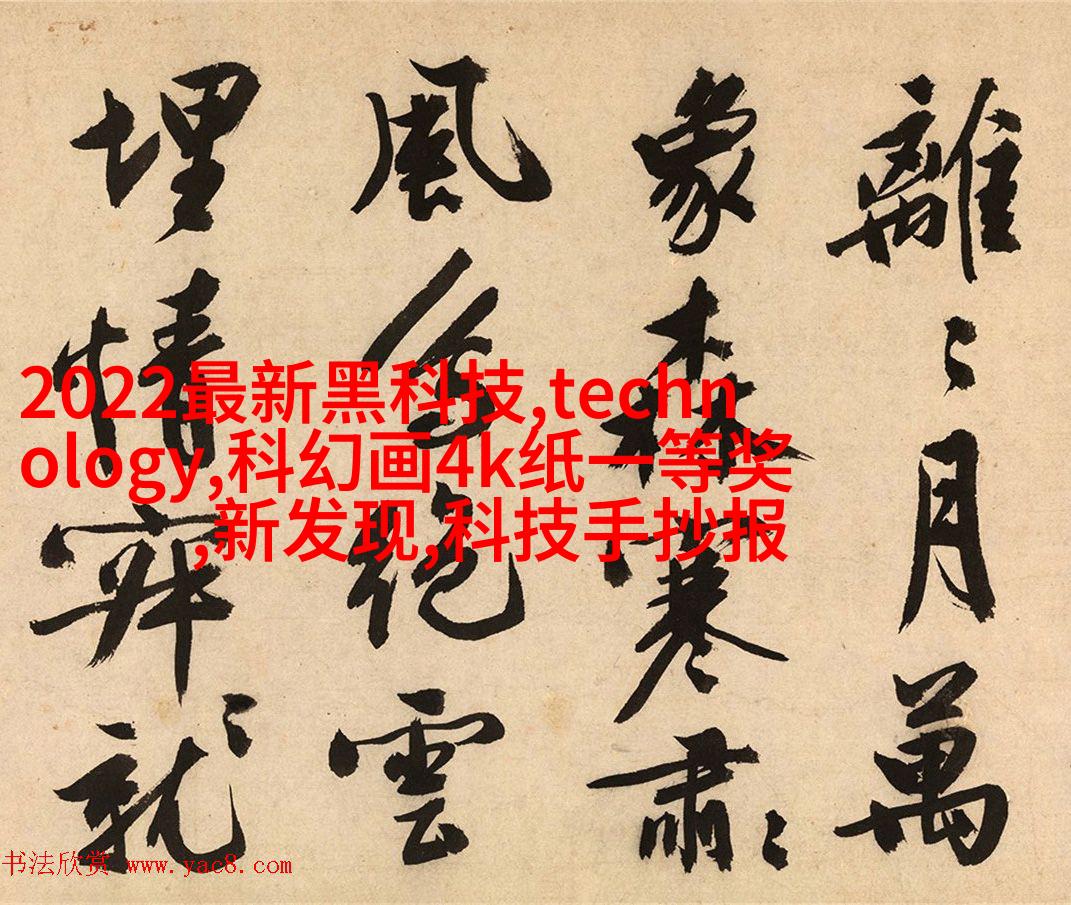 離〻月萬
象森寒肅〻
風絶雲
埋情就〻
2022最新黑科技,techn
ology,科幻画4k纸一等奖
,新发现,科技手抄报
书法欣赏 www.yac8.com